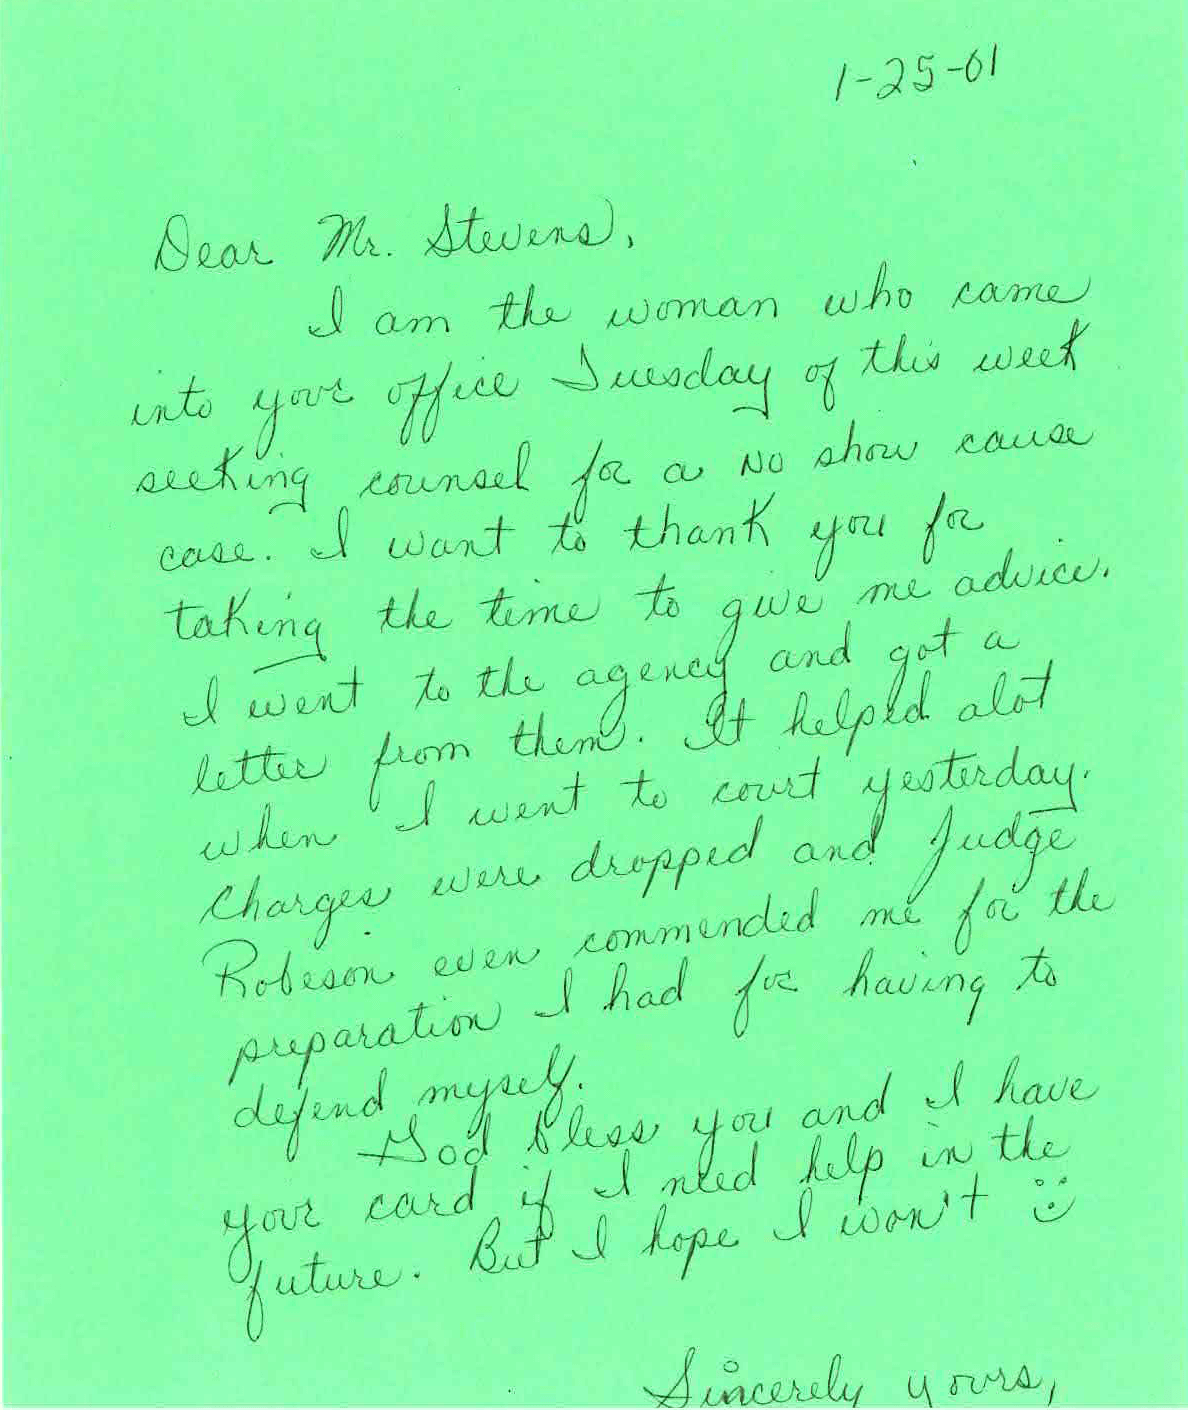 1-25-01
Dear Mr. Stevens,
I am the woman who came
into your office Tuesday of this week
seeking counsel for a No show cause
case. I want to thank you for
taking the time to give me advice.
I went to the agency and got a
letter from them. It helped alot
when I went to court yesterday.
Charges were dropped and Judge
Robeson even commended me for the
preparation I had for having to
defend myself.
God bless you and I have
your card if I need help in the
future. But I hope I won't :)
Sincerely yours,